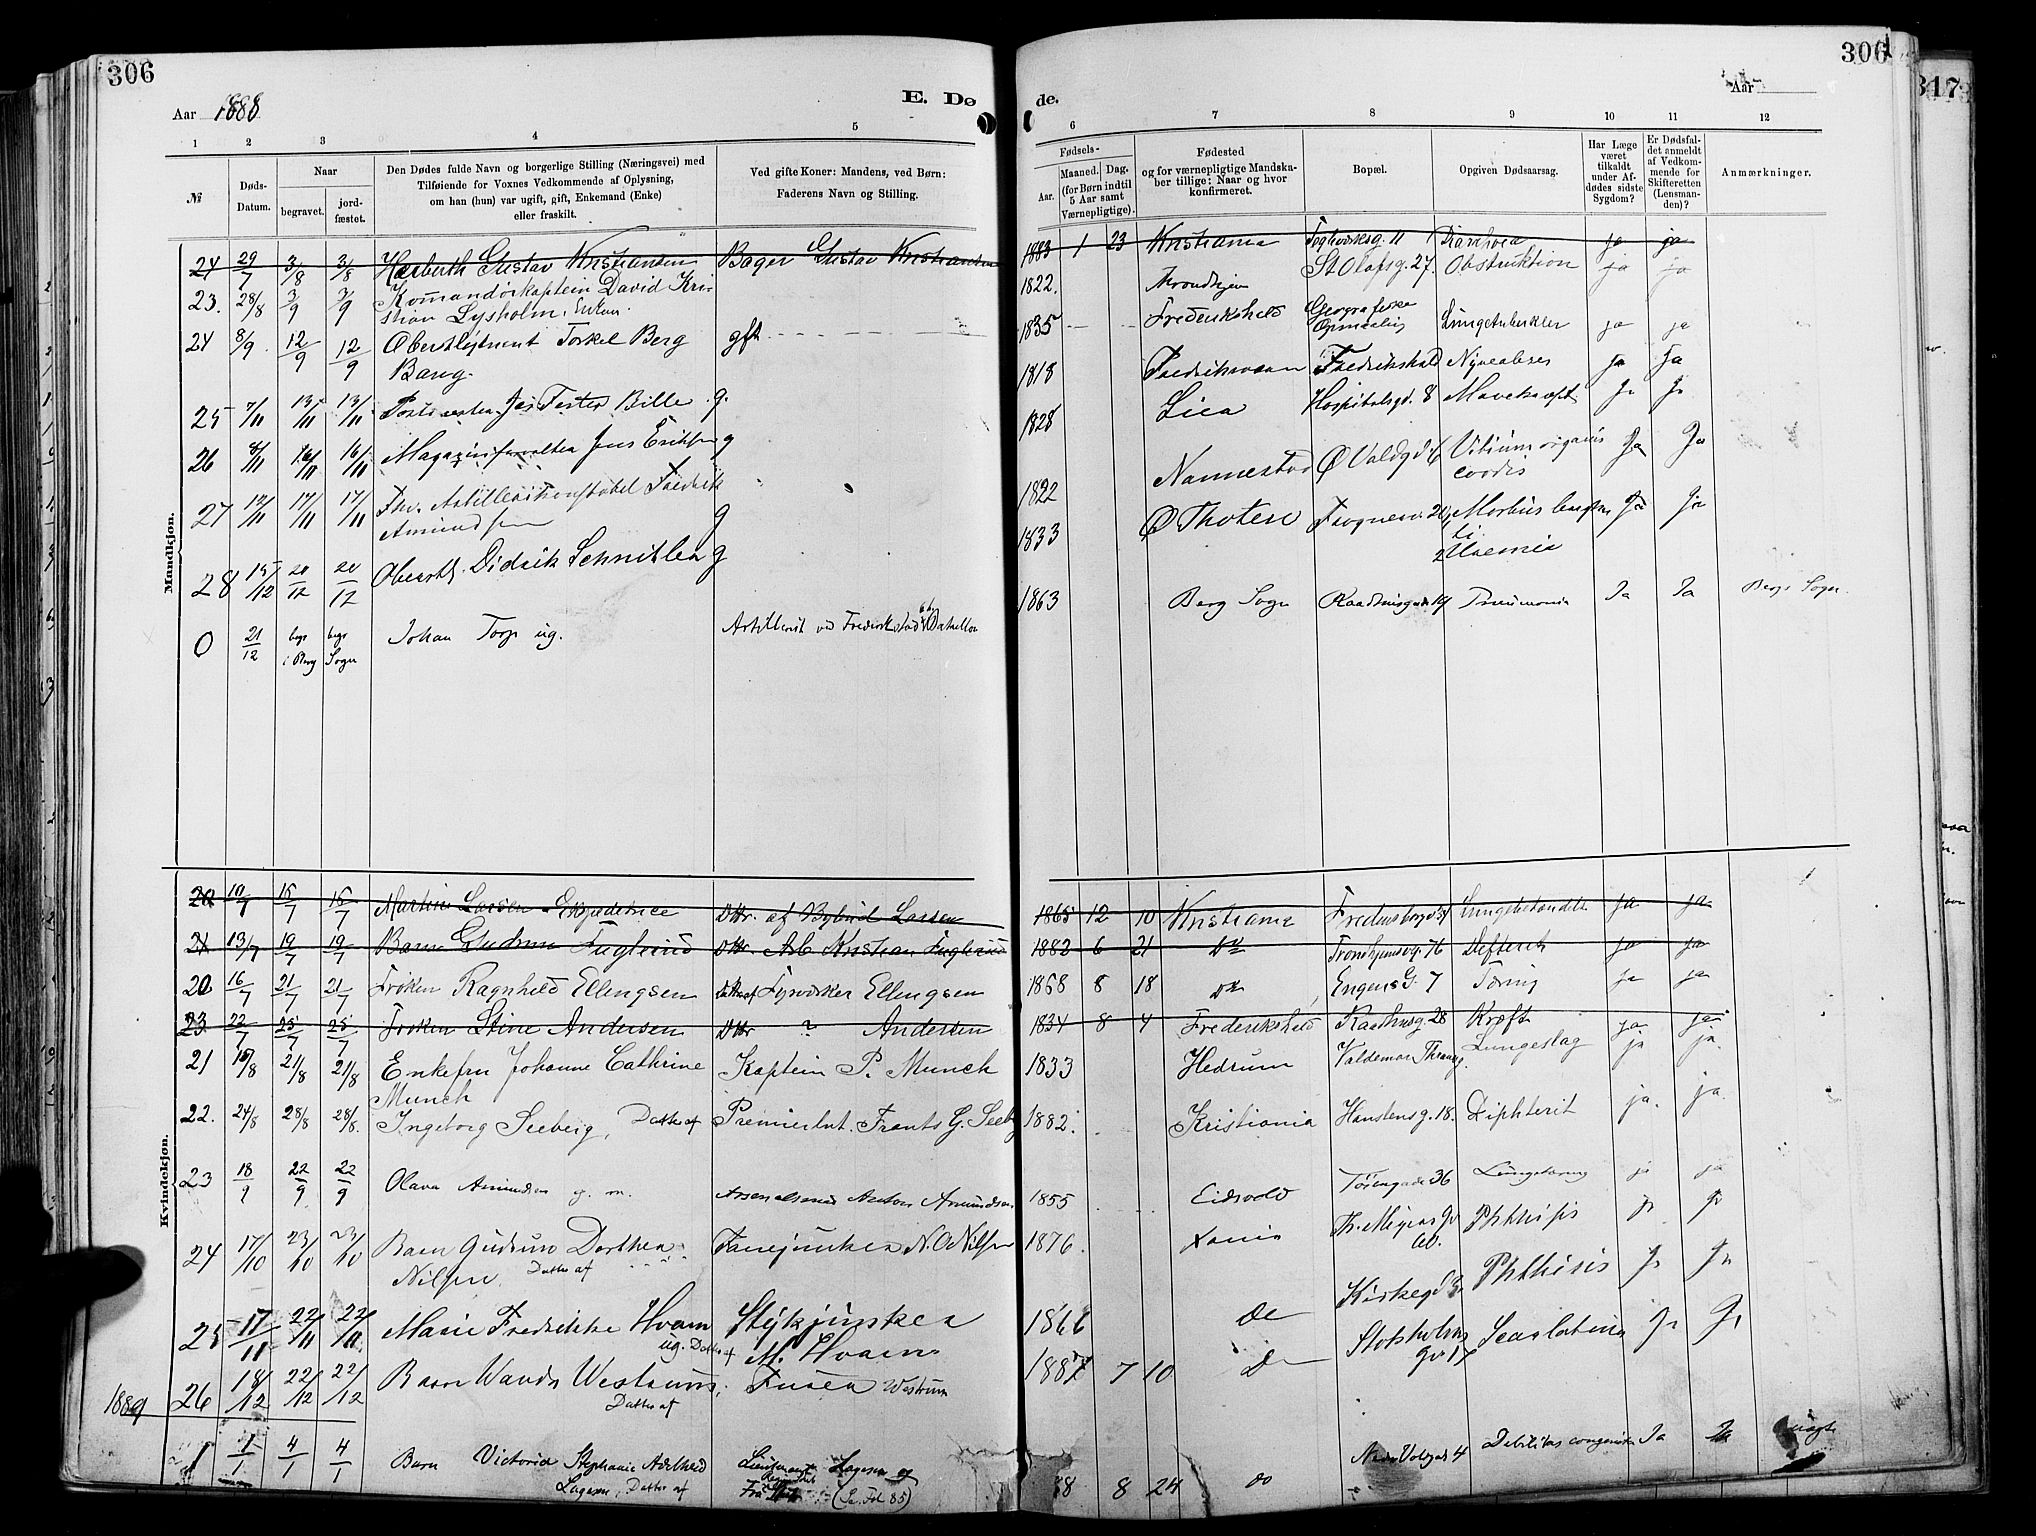 306
Aar 1888.
E. Dø
1 2 3 4 5
№
Døds-Datum.
Naar
begravet.
jord-fæstet.
Den Dødes fulde Navn og borgerlige Stilling (Næringsvei) med
Tilføiende for Voxnes Vedkommende af Oplysning,
om han (hun) var ugift, gift, Enkemand (Enke)
eller fraskilt.
Ved gifte Koner: Mandens, ved Børn:
Faderens Navn og Stilling.
Mandkjøn.
24 29/7 3/8 3/8 Herberth Gustav Kristiansen Bager Gustav Kristiansen
23. 28/8 3/9 3/9 Komandörkaptein David Kri-
stian Lysholm, Enkem.
24 8/9 12/9 12/9 Oberstløjtnent Torkel Berg gft
Bang.
25 7/11 13/11 13/11 Postmester Jes Tester Bille g.
26 8/11 16/11 16/11 Magazinforvalter Jens Eriksen g
27 12/11 17/11 17/11 Fhv. Artillerikonstabel Fredrik
Amundsen g
28 15/12 20/12 20/12 Oberstl. Didrik Schnitler g
0 21/12 begr. i Berg begr. Sogn Johan Torp ug. Artillerist ved Fredrikstads Batallon
Kvindekjøn.
20 10/7 15/7 15/7 Martine Larsen Expeditrice Dttr. af Bybud Larsen
21 13/7 19/7 19/7 Barn Gudrun Fuglerud Dttr. Arb. Kristian Fuglerud
20 16/7 21/7 21/7 Frøken Ragnhild Ellingsen Datter af Fyrvörker Ellingsen
23 22/7 25/7 25/7 Frøken Stine Andersen Dttr ? Andersen
21 15/8 21/8 21/8 Enkefru Johanne Cathrine Kaptein P. Munch
Munch
22. 24/8 28/8 28/8. Ingeborg Seeberg, Datter af Premierlnt. Frants G. Seeb
23 18/9 22/9 22/9 Olava Amundsen g. m. Arsenalsmed Anton Amundsen
24 17/10 23/10 23/10 Barn Gudrun Dorthea Fanejunker N. O. Nilsen
Nilsen, Datter af
25 17/11 22/11 22/11 Marie Fredrikke Hvam Stykjunker
ug. Datter af M. Hvam
26 18/12 22/12 22/12 Barn Wanda Westrum, Furer Westrum
Datter af
1889
1 1/1 4/1 4/1 Barn Victoria Stephanie Adelheid
Lagesen, Datter af
Lagesen og
(Se Fol 85)
306
317
de.
Aar
6 7 8 9 10 11 12
Fødsels-
Aar.
Maaned. Dag.
(for Børn indtil
5 Aar samt
Værnepligtige).
Fødested
og for værnepligtige Mandska-
ber tillige: Naar og hvor
konfirmeret.
Bopæl.
Opgiven Dødsaarsag.
Har Læge
været
tilkaldt
under Af-
dødes sidste
Sygdom?
Er Dødsfal-
det anmeldt
af Vedkom-
mende for
Skifteretten
(Lensman-
den)?
Anmærkninger.
1883 1 23 Kristiania Toghusg. 11 Diarrhoea ja ja
1822. Trondhjem St Olafsg. 27. Obstruktion ja ja
1835 Fredrikshald Geografiske
Opmaaling Lungetuberkler ja ja
1818 Fredriksværn Fredrikshald ja Ja
1828 Lier Hospitalsgd. 8 Mavekræft Ja Ja
1822 Nannestad Ø Voldgd. 6 Vitium organis
cordis Ja Ja
1833 Ø Thoten Frognerv. 20 Morbus
Uræmia Ja Ja
1863 Berg Sogn Raadhusgade 19 Pneumonia Ja Ja Bergs Sogn.
1865 12 10 Kristiania Fredensborgvd 34 ja ja
1882 6 21 Do Trondhjemsvg. 76 Difterit ja ja
1868 8 18 Do Engens G. 7 Tæring ja ja
1834 8 4 Frederikshald Raadhusg. 28 Kræft ja ja
1833 Hedrum Valdemar Thranesg. Lungeslag ja ja.
1882. Kristiania Hanstensg. 18. Diphterit ja. ja.
1855 Eidsvold Töiengade 36 Lungetæring ja ja
1876. Xania Th. Meyers Gd
60. Phthisis Ja Ja
1866 Do Kirkegd 3 Phthisis Ja Ja
1887 7 10 Do Stokholms
Gd 17 Scarlatina Ja Ja
88 8 24 do Nedre Voldgade 4 Debilitas congenita Ja Ja